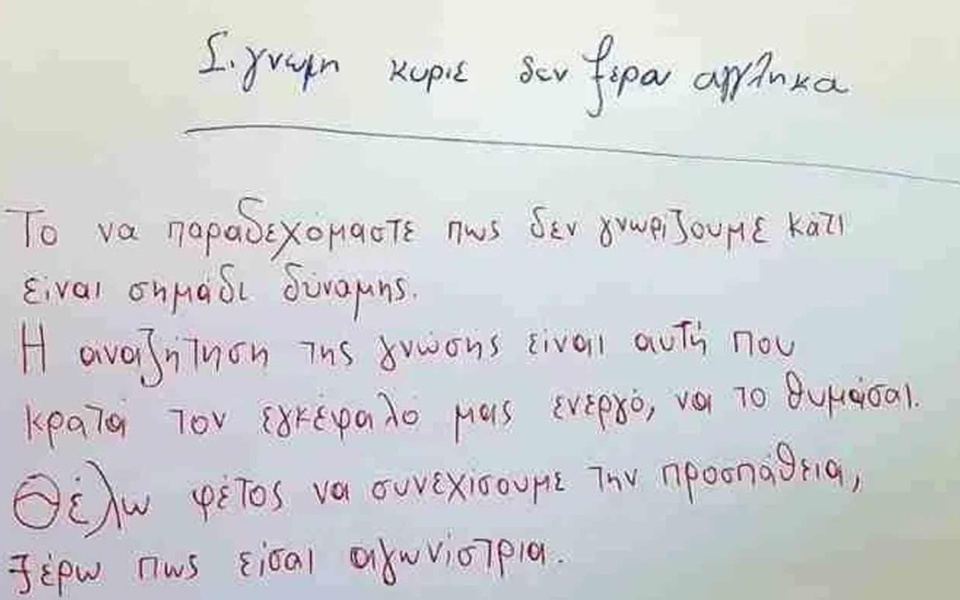 Σ.γνωμη κυριε δεν ξερω αγγληκα
Το να παραδεχόμαστε πως δεν γνωρίζουμε κάτι
είναι σημάδι δύναμης.
Η αναζήτηση της γνώσης είναι αυτή που
κρατά τον εγκέφαλό μας ενεργό, να το θυμάσαι.
Θέλω φέτος να συνεχίσουμε την προσπάθεια,
ξέρω πως είσαι αγωνίστρια.